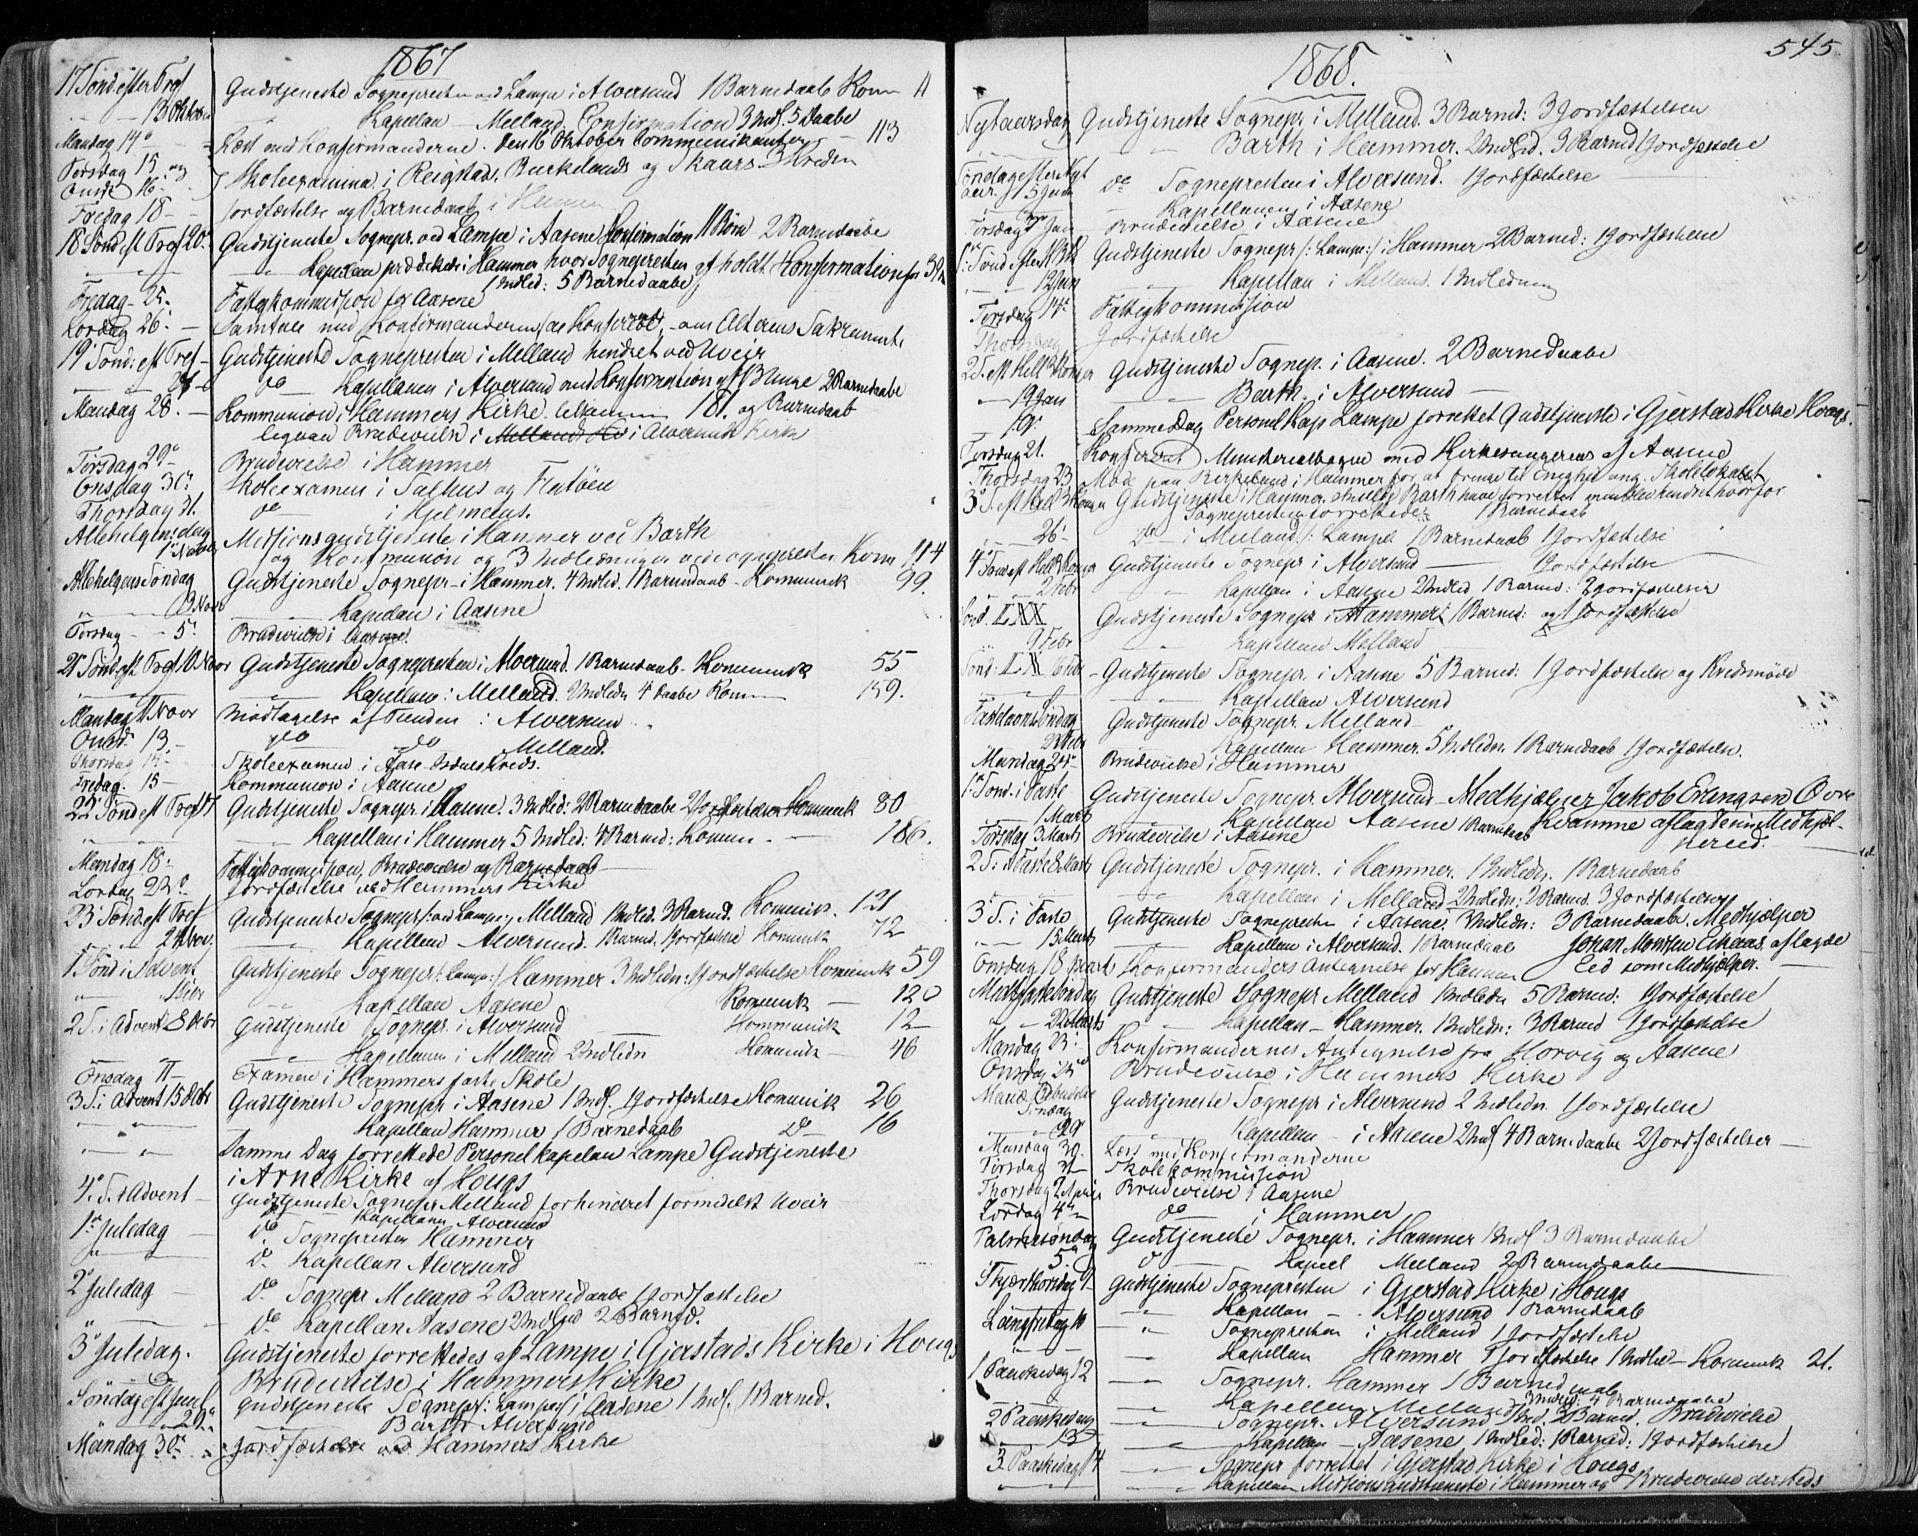 1867
17 Sønd. efter Tref Gudstjeneste Sogneprsten ved Lampe i Alversund 1 Barnedaab Kom 11
13 Oktober Kapellan Melland Confirmation 3 Indl. 5 Daabe
Mandag 14 Læst med Konfirmanderne. Den 16 Oktober Communikanter 113
Torsdag 15 og Skoleexamina i Reigstad, Burkelands og Skaars Kreden
Onsd 16
Fredag 18 Jordfæstelse og Barnedaab i Hammer
18 Sønd. eft Tref 20 Gudstjeneste Sognepr. ved Lampe i Aasene Konfirmation 11 Børn 2 Barnedaabe
Kapellan prædikede i Hammer hvor Sognepresten afholdt Konfirmation
1 Indled: 5 Barnedaabe
Fredag 25 Fattigkommission for Aasene
Lørdag 26 Samtale med Konfirmanderne om Alterens Sakramente
19 Sønd: eft Tref Gudstjeneste Sognepresten i Melland hindret ved Uveir
27 do Kapellanen i Alversund med Konfirmation af 13 Unge 2 Barnedaabe
Mandag 28 Kommunion i Hammers Kirke 181. og Barnedaab
Brudevielse i Alversund Kirke
Torsdag 29 Brudevielse i Hammer
Onsdag 30 Skoleexamen i Salhus og Flatøen
Thorsdag 31. do i Hjelmaas.
Allehelgensdag Missionsgudstjeneste i Hammer ved Barth
og Kommunion og 3 Indledninger ved Sognepresten Kom 114
Allehelgens Søndag Gudstjeneste Sognepr. i Hammer. 4 Indled. 1 Barnedaab. Kommunik 99.
3 Novb Kapellan i Aasene
Torsdag 5 Brudevielse i Aasene
21 Sønd eft Tref 10 Nov Gudstjeneste Sognepresten i Alversund. 1 Barnedaab. Kommunik 55
Kapellan i Melland. Indledn 4 Daabe Kom 159.
Mandag 11 Novr Modtagelse af Tienden i Alversund
Onsd. 13 do do Melland.
Thorsdag 14 Skoleexamen i Aase Isdals Kreds.
Fredag 15 Kommunion i Aasene
22 Sønd est Tref 17 Gudstjeneste Sognepr. i Aasene. 3 Indled: 2 Barnedaabe 2 Jordfæstelser Kommunik 80
Kapellan i Hammer 5 Indled: 4 Barned: Komun. 186.
Mandag 18 Fattigkommission, Brudevielse og Barnedaab
Lørdag 23 Jordfæstelse ved Hammers Kirke
23 Sønd est Tref Gudstjeneste Sognepr /: ved Lampe :/ Melland 1 Indled. 3 Barned. Kommunik. 121
24 Nov. Kapellan Alversund. 1 Barned. 1 Jordfæstelse Kommunik 72
1 Sønd i Advent Gudstjeneste Sognepr /: Lampe :/ Hammer 3 Indledn: 1 Jordfæstelse Kommunik 59
1 Dbr Kapellan Aasene Kommunik 120
2 S. i Advent 8 Debr Gudstjeneste Sognepr. i Alversund Kommunik 12
Kapellanen i Melland 2 Indledn Kommunik 46
Onsdag 11 Examen i Hammers faste Skole
3 S. i Advent 15 Debr Gudstjeneste Sognepr i Aasene 1 Indl. 1 Jordfæstelse Kommunik 26
Kapellan Hammer 1 Barnedaab do 16
Samme Dag forrettede Personelkapelan Lampe Gudstjeneste
i Arne Kirke af Hougs
4. S. i Advent Gudstjeneste Sognepr Melland forhindret formedelst Uveir
Kapellanen Alversund
1 Juledag do Sognepresten Hammer
do Kapellan Alversund
2 Juledag do Sognepr Melland 2 Barnedaabe 1 Jordfæstelse
do Kapellan Aasene 2 Indled 2 Barned.
3 Juledag. Gudstjeneste forrettedes af Lampe i Gjerstads Kirke i Hougs
Brudevielse i Hammers Kirke
Søndag eft Juul Gudstjeneste Sognepr /: Lampe :/ i Aasene 1 Indl. 1 Barned.
29 Barth Alversund
Mandag 30 Jordfæstelse ved Hammers Kirke
545
1868.
Nytaarsdag Gudstjeneste Sognepr i Melland. 3 Barned: 3 Jordfæstelser
Barth i Hammer. 2 Indled. 3 Barned 1 Jordfæstelse
Søndag efter Nyt do Sognepresten i Alversund. 1 Jordfæstelse
aar 5 Janr Kapellanen i Aasene
Torsdag Jan Brudevielse i Aasene
12 Jan Gudstjeneste Sognepr /: Lampe :/ i Hammer 2 Barned: 1 Jordfæstelse
Kapellan i Melland. 1 Indledning
Torsdag 14 Fattigkommission
Thorsdag Jordfæstelse
2 S. eft Hell 3 Konger Gudstjeneste Sognep. i Aasene. 2 Barnedaabe
19 Jan Barth. i Alversund
19 Samme Dag Personel Kap Lampe forrettet Gudstjeneste i Gjerstad Kirke Hougs.
Torsdag 21. Konfereret Ministerialbogen med Kirkesangeren af Aasene
Thorsdag 23 Møde paa Birkeland i Hammer for at komme til Enighed ang. Skolelokalet
3 S. eft Hell 3 Konger Gudstjeneste i Hammer skulde Barth have forrettet men blev hindret hvorfor
Sognepresten forrettede 1 Barnedaab
26 do i Melland /: Lampe 1 Barnedaab 1 Jordfæstelse
4 Sønd est Hell 3 Konger Gudstjeneste Sognepr i Alversund 1 Jordfæstelse
2 Febr Kapellan i Aasene 2 Indled 1 Barned: 2 Jordfæstelser
Sønd. LXX Gudstjeneste Sognepr i Hammer 1 Barned: og 1 Jordfæstelse
9 Febr Kapellan Melland
Sønd: LX Gudstjeneste Sognepr. i Aasene 5 Barned: 1 Jordfæstelse og Kredsmøde
Kapellan Alversund
Fastelavns Søndag Gudstjeneste Sognepr Melland
Kapellan Hammer. 5 Indledn. 1 Barnedaab 1 Jordfæstelse.
Mandag 24 Brudevielse i Hammer
1 Sønd. i Faste Gudstjeneste Sognepr Alversund Medhjælper Jakob Eringsen Øvre
1 Marts Kapellan Aasene 1 Barnedaab Kvamme aflagde sin Medhjæl-
Torsdag 3 Marts Brudevielse i Aasene pereed.
2 S. i Faste 8 Marts Gudstjeneste Sognepr. i Hammer 1 Indledn. 1 Barnedaab
Kapellan i Melland 2 Indledn: 2 Barned. 3 Jordfæstelser
3 S. i Faste Gudstjeneste Sognepresten i Aasene: 3 Indledn: 3 Barnedaab. Medhjælper
15 Marts Kapellan i Alversund. 1 Barnedaab Johan Monsen Eikaas aflagde
Onsdag 18 Marts Konfirmanders Antegnelse for Hammer Eed som Medhjelper.
Midfastesøndag Gudstjeneste Sognepr Melland 1 Indledn 5 Barned: 1 Jordfæstelse
22 Marts Kapellan Hammer. 1 Indledn: 3 Barned 1 Jordfæstelse
Mandag 23 Konfirmandernes Antegnelse fra Horvig og Aasene
Onsdag 25 Brudevielse i Hammers Kirke
Mariæ Bebudelse Gudstjeneste Sognepr i Alversund 2 Indledn. 1 Jordfæstelse
Søndag 29 Kapellan i Aasene 2 Indl 4 Barnedaabe 2 Jordfæstelser
Mandag 30 Læst med Konfirmanderne
Torsdag 31 Skolekommission
Thorsdag 2 April Brudevielse i Aasene
Lørdag 4 do i Hammer
Palmesøndag Gudstjeneste Sognepr. i Hammer 1 Indl 3 Barnedaabe
5 do Kapel Melland 2 Barnedaabe
Skjærthorsdag 9 Gudstjeneste Sognepresten i Gjerstad Kirke i Hougs
Kapellan Alversund 1 Barnedaab
Langfredag 10 Sognepresten i Melland 1 Jordfæstelse
Kapellan Hammer 1 Jordfæstelse 1 Indled Kommunik 21.
1 Paaskedag 12 Sognepr. Hammer 1 Barnedaab
Kapellan Melland 3 Indled: 4 Barnedaabe
2 Paaskedag Sognepr. Alversund 1 Ind. 2 Barned. Brudevielse
13 Kapellan Aasene 1 Indled: 1 Barned: 1 Jordfæstelse
3 Paaskedag 14 Sognepr forrettet i Gjerstad Kirke i Hougs
Kapellan Missionsgudstjeneste i Hammer og Brudevielse dersteds